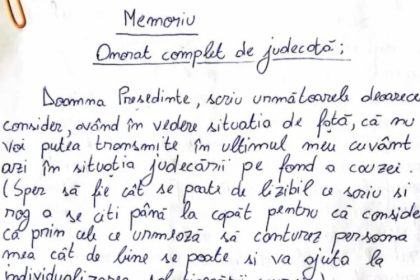 Memoriu
Onorat complet de judecată;
Doamna Presedinte, scriu următoarele deoarece
consider, având în vedere situatia de față, că nu
voi putea transmite în ultimul meu cuvânt
azi în situația judecării pe fond a cauzei.
(Sper să fie cât se poate de lizibil ce scriu si
rog a se citi până la capăt pentru că consider
că prin cele ce urmează să conturez persoana
mea cât de bine se poate si va ajuta la
individualizarea